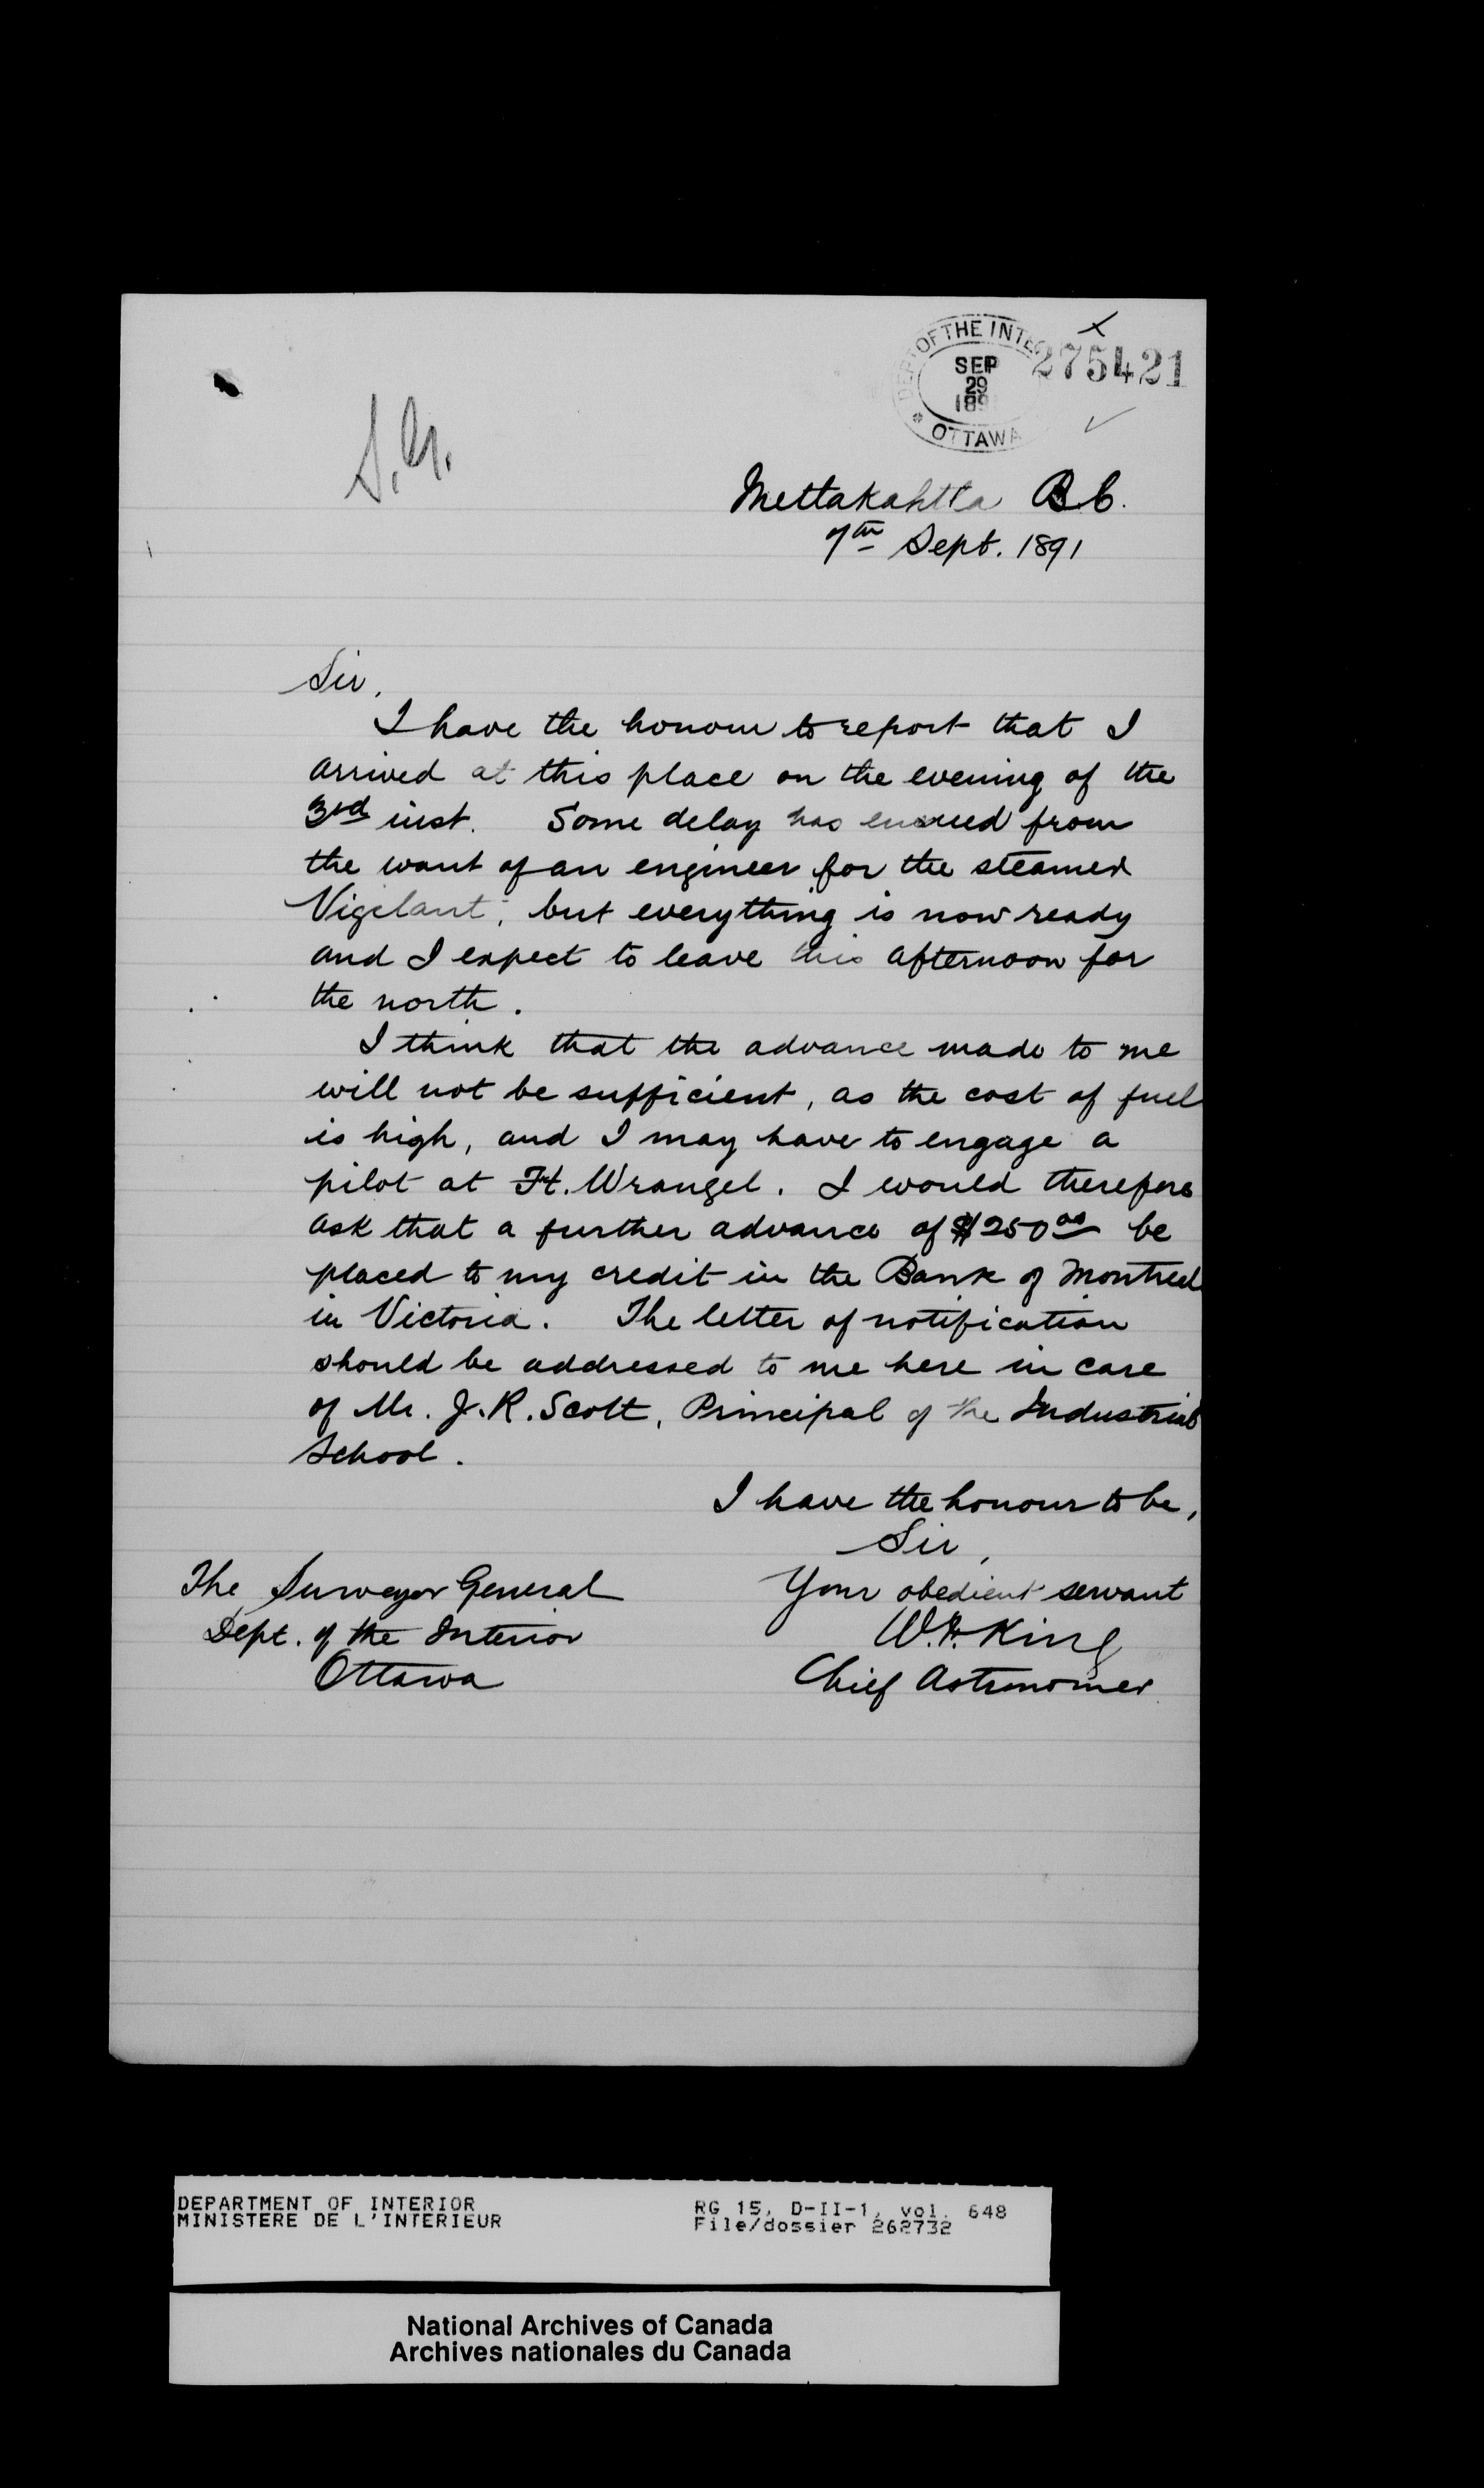 DEPT OF THE INTE
SEP
29
189
OTTAWA
275421
S.G.
Mettakahtla B.C.
7th Sept. 1891
Sir,
I have the honour to report that I
arrived at this place on the evening of the
3rd inst. Some delay has ensued from
the want of an engineer for the steamer
Vigilant, but everything is now ready
and I expect to leave this afternoon for
the north.
I think that the advance made to me
will not be sufficient, as the cost of fuel
is high, and I may have to engage a
pilot at Ft. Wrangel. I would therefore
ask that a further advance of $250 00 be
placed to my credit in the Bank of Montreal
in Victoria. The letter of notification
should be addressed to me here in care
of Mr. J.R. Scott, Principal of the Industrial
School.
I have the honour to be,
Sir,
Your obedient servant
W.F. King
Chief Astronomer
The Surveyor General
Dept. of the Interior
Ottawa
DEPARTMENT OF INTERIOR
MINISTERE DE L'INTERIEUR
RG 15, D-II-1, vol. 648
File/dossier 262732
National Archives of Canada
Archives nationales du Canada